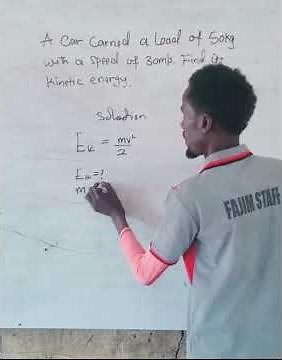 A Car Carried a Load of 50kg
with a speed of 30m/s. Find its
Kinetic energy.
Solution
Ek = mv²/2
Ek = ?
m
FAJIM STAFF